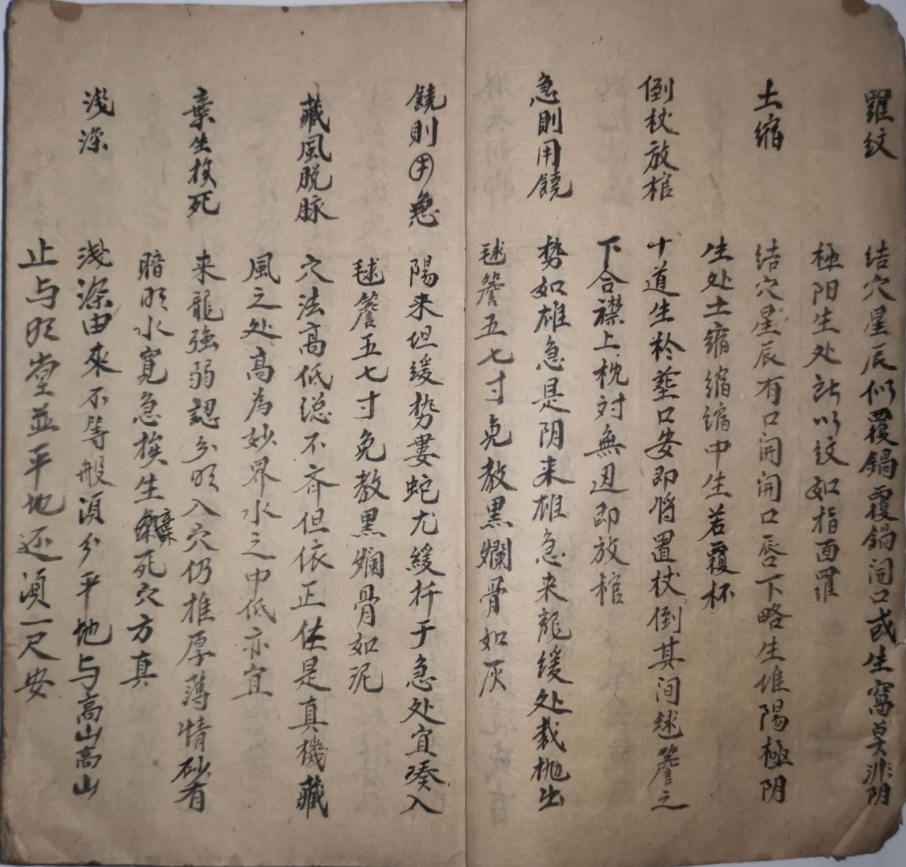 羅紋
結穴星辰似覆鍋覆鍋開口或生窩莫非阴
極阳生处所以紋如指面羅
土缩
結穴星辰有口開開口唇下略生堆陽極阴
生处土缩缩缩中生若覆杯
倒杖放棺
十道生於塟口安即將置杖倒其间毬簷之
下合襟上枕对無边即放棺
急則用饒
勢如雄急是阴来雄急来龍緩处裁抛出
毬簷五七寸免教黑爛骨如灰
饒則用急
陽来坦緩势要蛇尤緩扦于急处宜凑入
毬簷五七寸免教黑爛骨如泥
藏風脱脉
穴法高低总不齐但依正伕是真機藏
風之处高為妙界水之中低亦宜
棄生挨死
来龍強弱認分明入穴仍推厚薄情砂有
暗明水寬急挨生棄死穴方真
浅深
浅深由來不等般須分平地与高山高山
止与明堂並平地还須一尺安